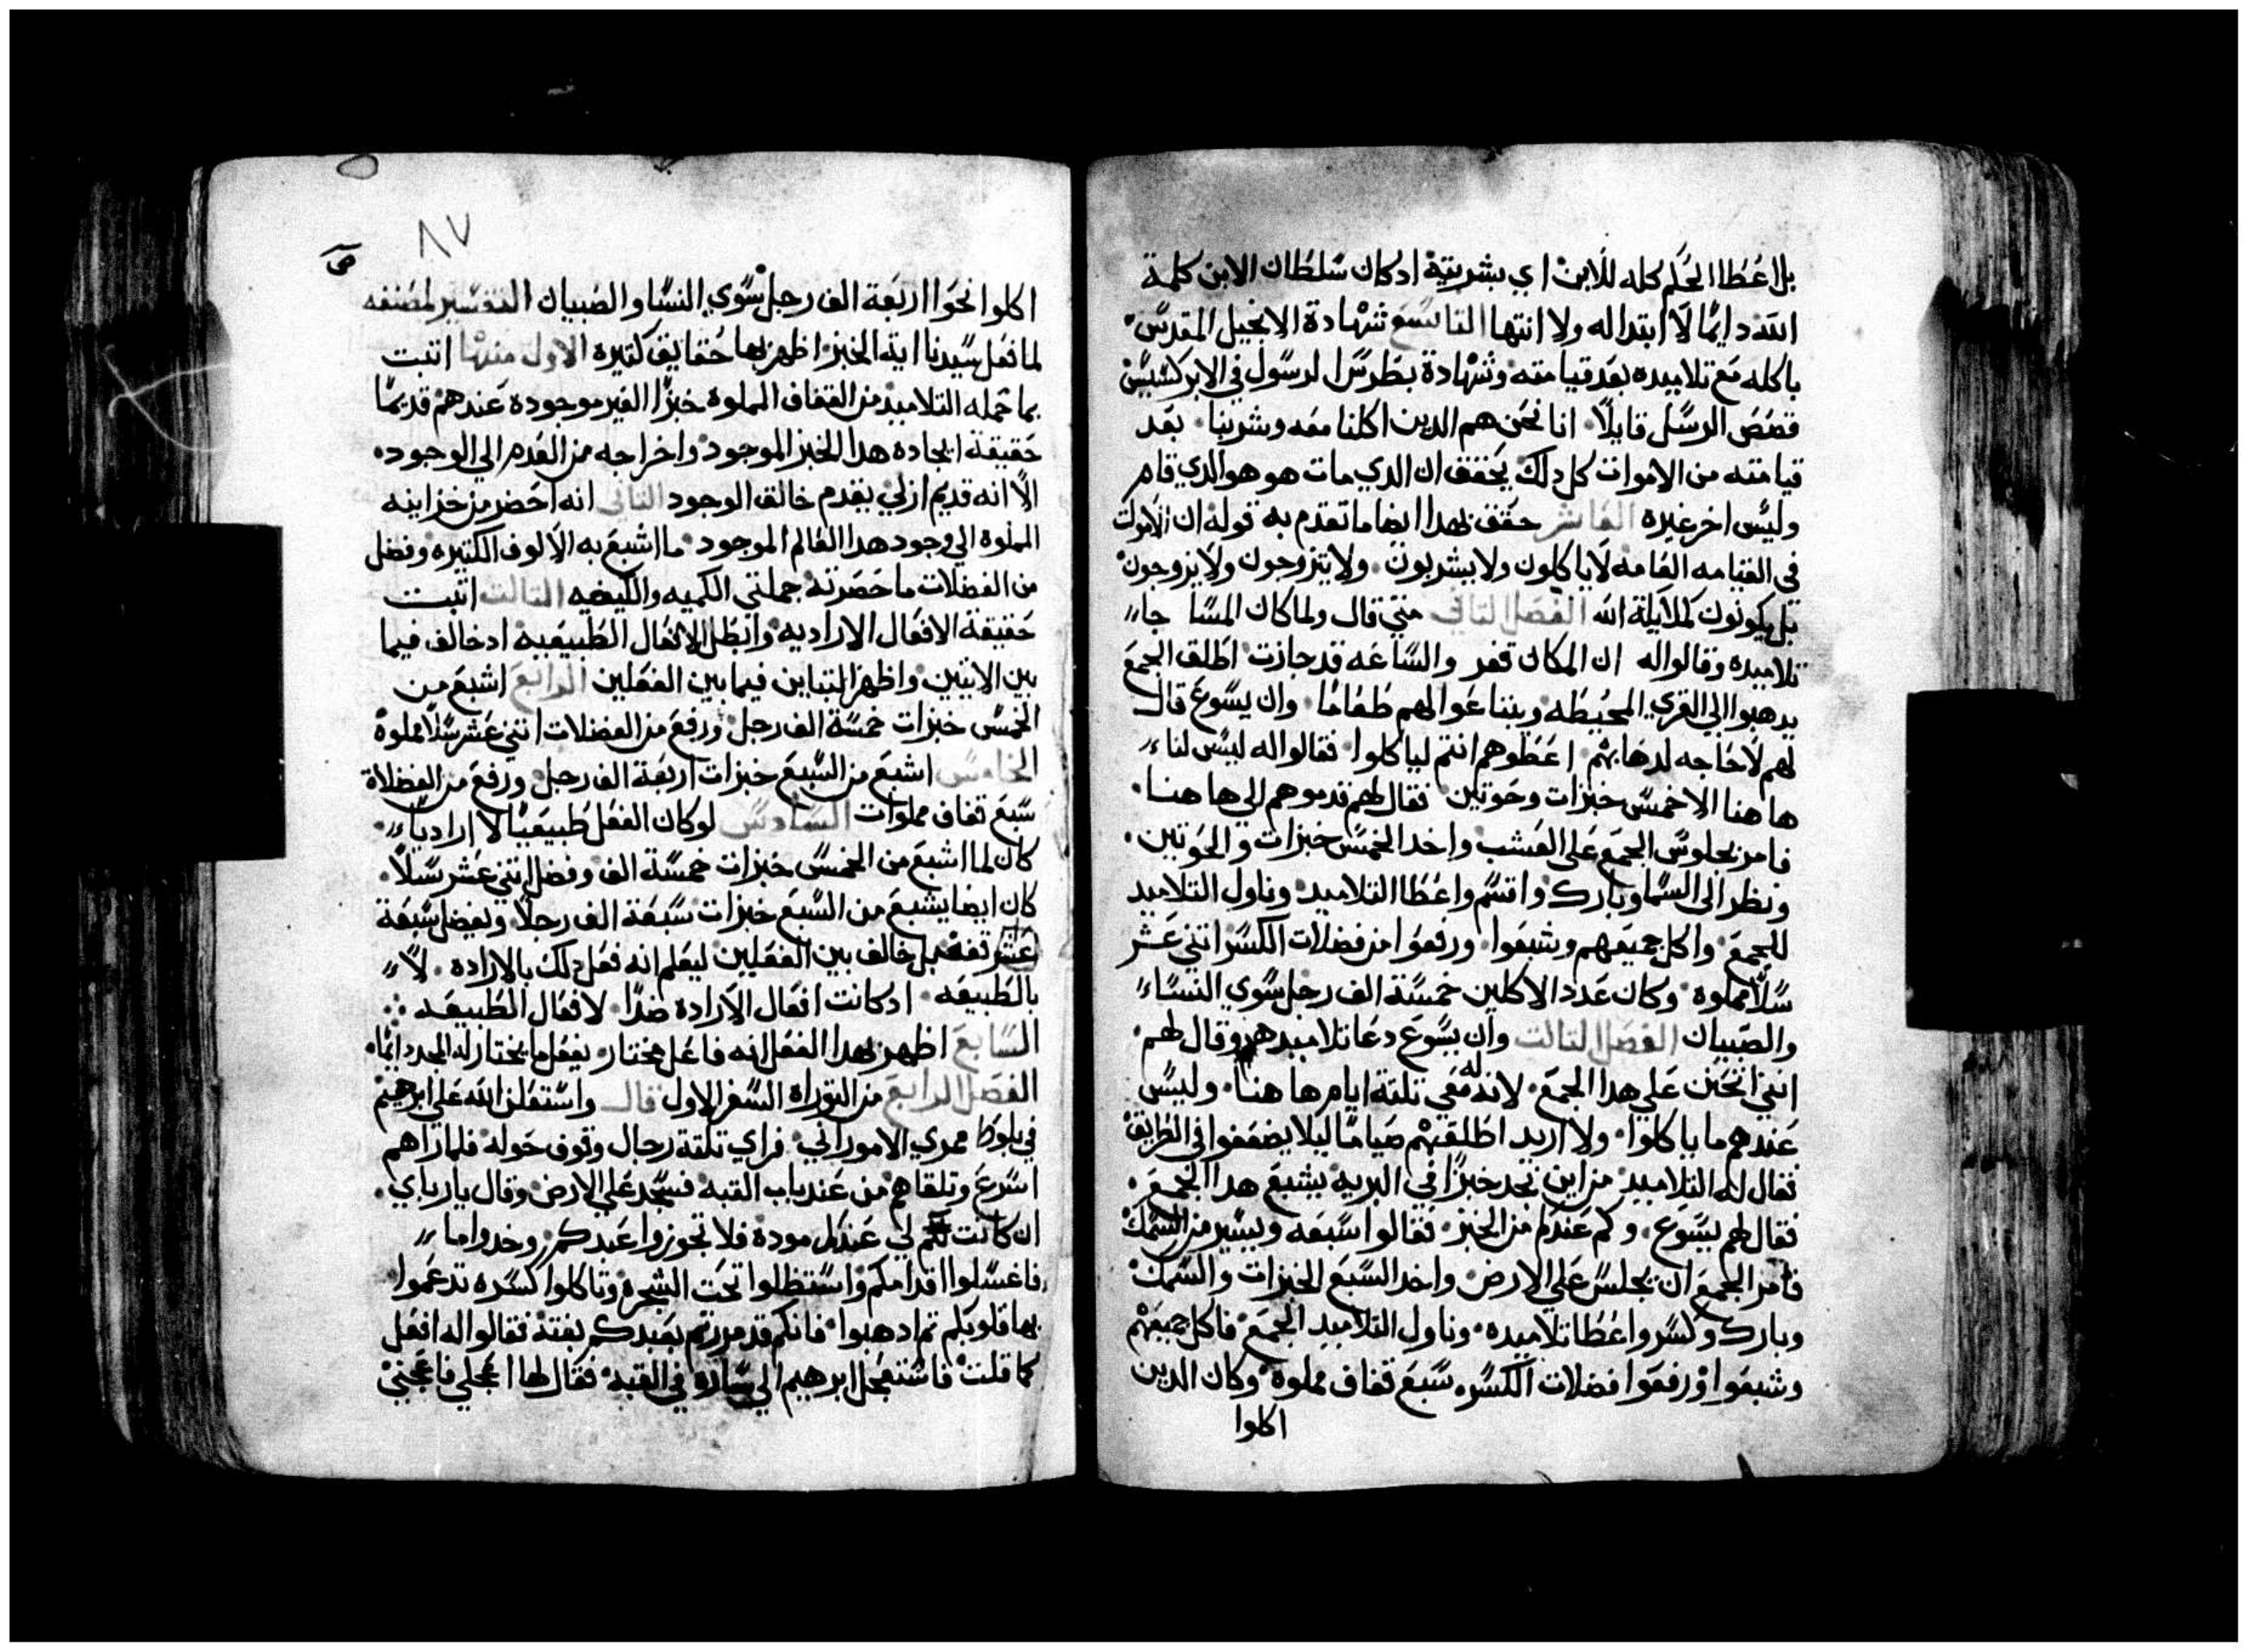 بل اعطا الحكم كله للابن اي بشريته ادكان سلطان الابن كلمة
الله دايمًا لا ابتدا له ولا انتها التاسع شهادة الانجيل المقدس
باكله مع تلاميده بعد قيامته وشهادة بطرس الرسول في الابركسيس
قصص الرسل قايلًا انا نحن هم الدين اكلنا معه وشربنا بعد
قيامته من الاموات كل دلك يحقق ان الدي مات هو هو الدي قام
وليس اخر غيره العاشر حقق بهدا ايضا ما تقدم به قوله ان الاموات
في القيامه العامه لا ياكلون ولا يشربون ولا يتزوجون ولا يزوجون
بل يكونون كملايكة الله الفصل التاني متي قال ولما كان المسا جا
تلاميده وقالوا له ان المكان قفر والساعه قد جازت اطلق الجمع
يدهبوا الي القري المحيطه ويبتاعوا لهم طعامًا وان يسوع قال
لهم لا حاجه لدهابهم اعطوهم انتم لياكلوا فقالوا له ليس لنا
هاهنا الا خمس خبزات وحوتين فقال لهم قدموهم الي هاهنا
فامر بجلوس الجمع علي العشب واخد الخمس خبزات والحوتين
ونظر الى السما وبارك واقسم واعطا التلاميد وناول التلاميد
للجمع واكل جميعهم وشبعوا ورفعوا من فضلات الكسر اتني عشر
سلًا مملوه وكان عدد الاكلين خمسة الف رجل سوي النساء
والصبيان الفصل التالت وان يسوع دعا تلاميده وقال لهم
انني اتحنن علي هدا الجمع لان له معي تلتة ايام هاهنا وليس
عندهم ما ياكلوا ولا اريد اطلقهم صيامًا ليلا يضعفوا في الطريق
فقال له التلاميد من اين نجد خبزًا في البريه يشبع هدا الجمع
فقال لهم يسوع وكم عندكم من الخبز فقالوا سبعه ويسير من السمك
فامر الجمع ان يجلس علي الارض واخد السبع الخبزات والسمك
وبارك وكسر واعطا تلاميده وناول التلاميد الجمع فاكل جميعهم
وشبعوا ورفعوا فضلات الكسره سبع قفاف مملوة وكان الدين
اكلوا
٨٧
اكلوا نحوا اربعة الف رجل سوي النسا والصبيان التفسير لمصنفه
لما فعل سيدنا اية الخبز اظهر بها حقايق كتيره الاول منها اتبت
بما حمله التلاميد من القفاف المملوة خبزًا الغير موجودة عندهم قديمًا
حقيقة ايجاده هدا الخبز الموجود واخراجه من العدم الي الوجود
الا انه قديم ازلي بقدم خالق الوجود التاني انه احضر من خزاينه
المملوة الي وجود هدا العالم الموجود ما اشبع به الالوف الكتيره وفضل
من الفضلات ما حصرته جملتي الكميه والكيفيه التالت اتبت
حقيقة الافعال الاراديه وابطل الافعال الطبيعيه ادخالف فيما
بين الايتين واظهر التباين فيما بين الفعلين الرابع اشبع من
الخمس خبزات خمسة الف رجل ورفع من الفضلات اتني عشر سلًا مملوة
الخامس اشبع من السبع خبزات اربعة الف رجل ورفع من الفضلاة
سبع قفاف مملوات السادس لو كان الفعل طبيعيًا لا اراديًا
كان لما اشبع من الخمس خبزات خمسة الف وفضل اتني عشر سلًا
كان ايضا يشبع من السبع خبزات سبعة الف رجلًا ويفضل سبعة
عشر قفه بل خالف بين الفعلين ليعلم انه فعل دلك بالاراده لا
بالطبيعه ادكانت افعال الاراده ضدًا لافعال الطبيعه
السابع اظهر بهدا الفعل انه فاعل مختار يفعل ما يختار له المجد دايمًا
الفصل الرابع من التوراه السفر الاول قال واستعلن الله علي ابرهيم
في بلوط ممري الاموراني فراي تلتة رجال وقوف حوله فلما راهم
اسرع وتلقاهم من عند باب القبه فسجد علي الارض وقال يارباي
ان كانت لي عندكم مودة فلا تجوزوا عبدكم وخدوا ما
فاغسلوا اقدامكم واستظلوا تحت الشجره وتاكلوا كسره تدعموا
بها قلوبكم تم ادهبوا فانكم قد مررتم بعبدكم بغتة فقالوا له افعل
كما قلت فاستعجل ابرهيم الي ساره في القبه فقال لها اعجلي فاعجني